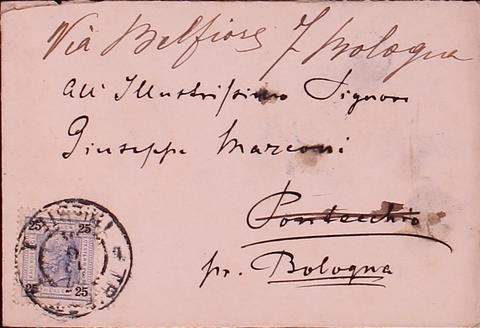 Via Belfiore 7 Bologna
All' Illustrissimo Signor
Giuseppe Marconi
Pontecchio
pr. Bologna
25 25
25 25